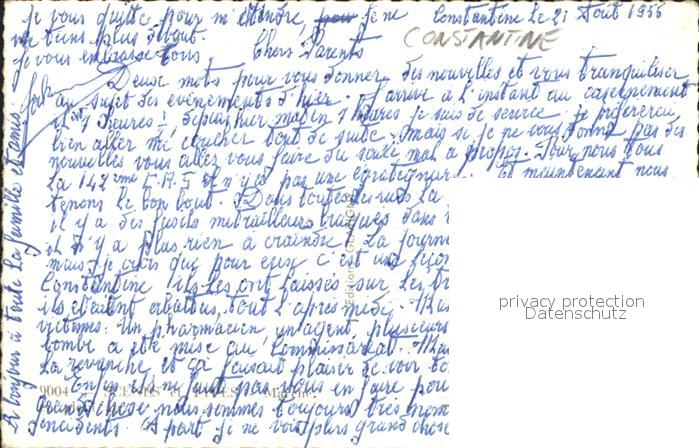 Constantine le 21 Août 1955
CONSTANTINE
Chers Parents
Deux mots pour vous donner des nouvelles et vous tranquiliser
au sujet des évènements d'hier. J'arrive à l'instant au casernement
il est 7 heures, depuis hier matin 7 heures je suis de service. je préfèrerai
bien aller me coucher tout de suite. Mais si je ne vous donne pas des
nouvelles vous allez vous faire du souci mal à propos. Pour nous tous
la 142ème il n'y a pas une égratignure. Et maintenant nous
tenons le bon bout. Dans toutes les rues la
il y a des fusils mitrailleurs braqués dans
il n'y a plus rien à craindre. La journée
mais je crois que pour eux c'est une leçon
Constantine ils les ont laissés sur les
ils étaient abattus, tout l'après midi.
victimes: Un pharmacien, un agent, plusieurs
bombe a été mise au commissariat.
la revanche et ça faisait plaisir de voir
Enfin il ne faut pas vous en faire pour
grand chose nous sommes toujours très nom
d'incidents. A part je ne vois plus grand chose
je vous quitte pour m'étendre, je ne
me tiens plus debout.
je vous embrasse tous,
le bonjour à toute la famille et amis
9004 SCÈNES et TYPES
Editions
privacy protection
Datenschutz